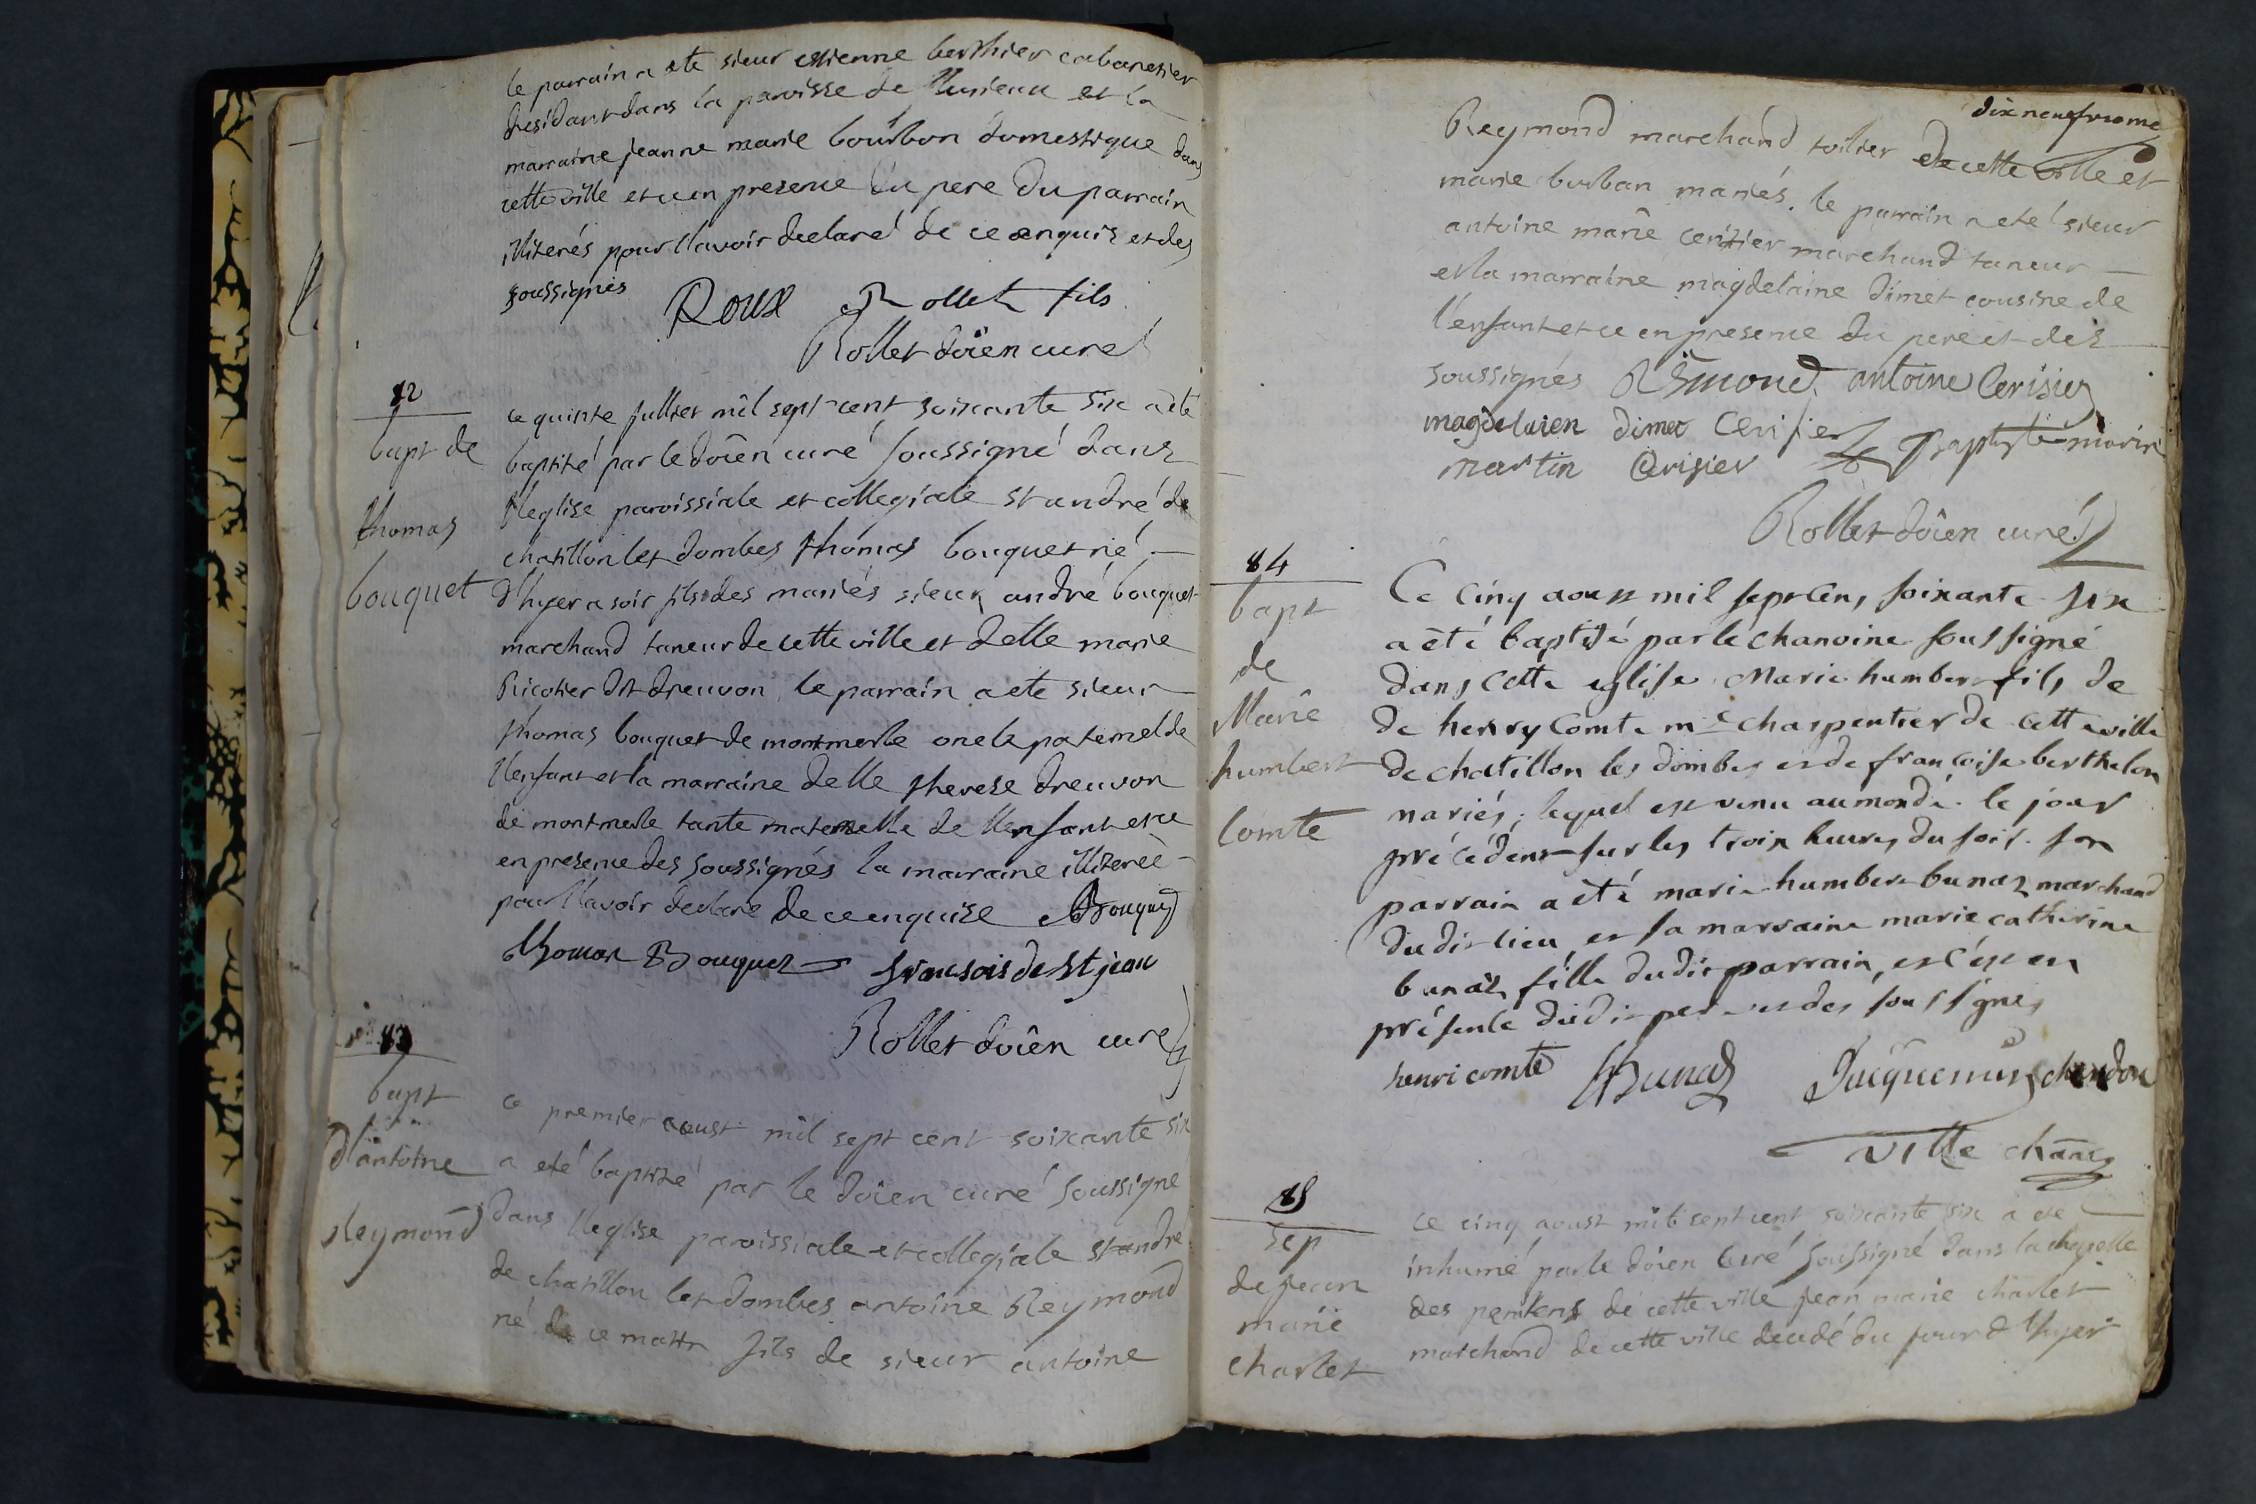 le parrain a ete sieur estienne berthier cabaretier
residant dans la paroisse de et la
marraine jeanne marie bourbon domestique dans
cette ville et ce en presence du pere du parrain
illiterés pour l'avoir declaré de ce enquis et des
soussignés Roux Rollet fils
Rollet doïen curé
82
bapt de
thomas
bouquet
ce quinze juillet mil sept cent soixante six a ete
baptizé par le doïen curé soussigné dans
l'eglise paroissiale et collegiale st andré de
chatillon les dombes thomas bouquet né
d'hyer a soir fils des mariés sieur andré bouquet
marchand taneur de cette ville et delle marie
Ricotier dit dreuvon, le parrain a ete sieur
thomas bouquet de montmerle oncle paternel de
l'enfant et la marraine delle therese dreuvon
de montmerle tante maternelle de l'enfant et ce
en presence des soussignés la marraine illiterée
pour l'avoir declaré de ce enquise Bouquet
thomas Bouquet fransois de st jean
Rollet doïen curé
83
bapt
d'antoine
Reymond
ce premier aoust mil sept cent soixante six
a eté baptizé par le doïen curé soussigné
dans l'eglise paroissiale et collegiale st andré
de chatillon les dombes antoine Reymond
né de ce matin fils de sieur antoine
dix neufvieme
Reymond marchand toilier de cette ville et
marie burban mariés. le parrain a eté sieur
antoine marie cerisier marchand taneur
et la marraine magdelaine dimet cousine de
l'enfant et ce en presence du pere et des
soussignés Rēmond antoine Cerisier
magdelaien dimet Cerisier Baptiste morin
martin Cerisier
Rollet doïen curé
84
bapt
de
Marie
humbert
Comte
Ce Cinq aoust mil sept Cens soixante six
a été baptisé par le chanoine soussigné
dans Cette eglise Marie humbert fils de
de henry Comte me charpentier de cette ville
de chatillon les dombes et de francoise berthelon
mariés, lequel est venu au monde le jour
précédent sur les trois heures du soir. son
parrain a été marie humbert bunaz marchand
dudit lieu et sa marraine marie catherine
bunaz, fille dudit parrain, et c'est en
présence dudit pere et des soussignés
henri comte Bunaz Jacquemin chandon
ville chane
85
sep
de jean
marie
charlet
ce cinq aoust mil sept cent soixante six a ete
inhumé par le doïen curé soussigné dans la chapelle
des penitens de cette ville jean marie charlet
marchand de cette ville decedé du jour d'hyer